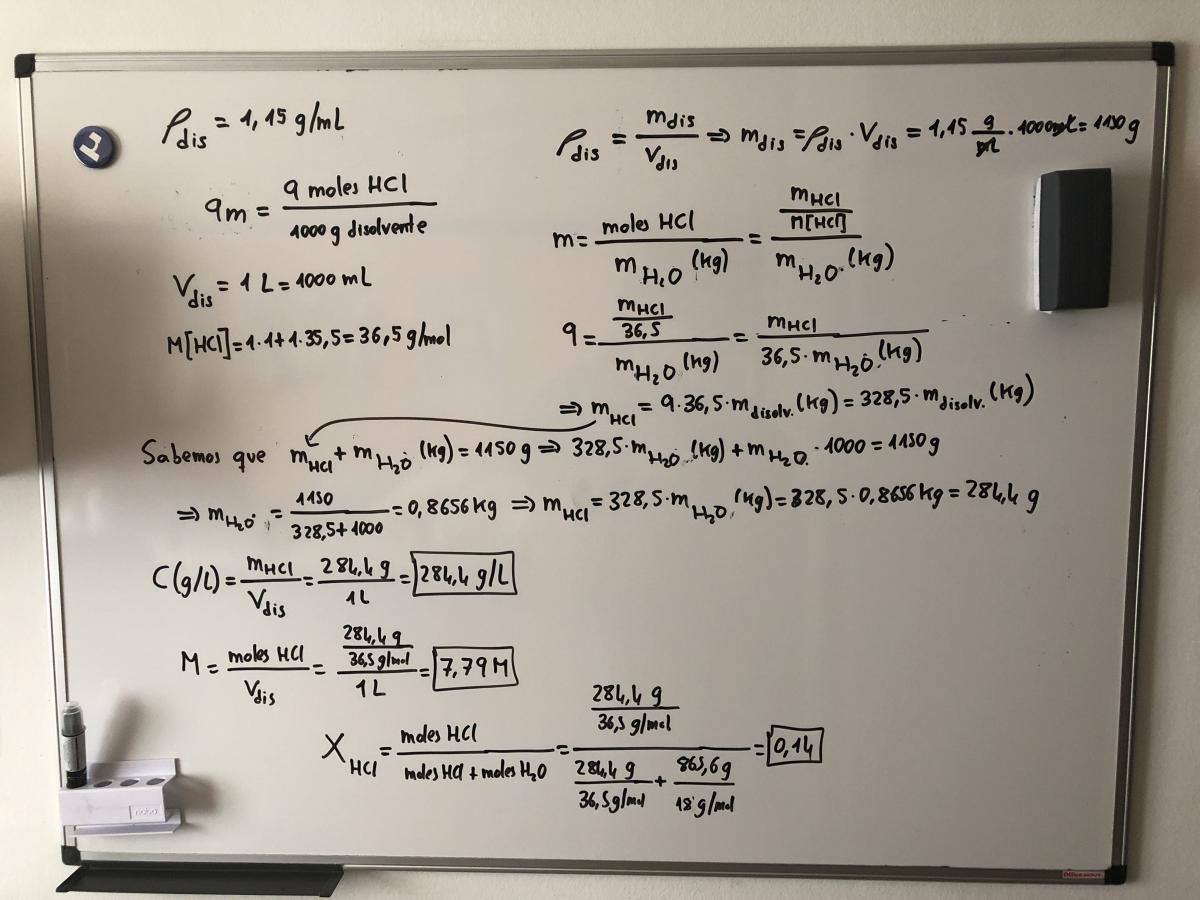 ρdis = 1,15 g/mL
9m = 9 moles HCl / 1000 g disolvente
Vdis = 1 L = 1000 mL
M[HCl] = 1·1 + 1·35,5 = 36,5 g/mol
ρdis = mdis / Vdis ⇒ mdis = ρdis · Vdis = 1,15 g/mL · 1000 mL = 1150 g
m = moles HCl / mH₂O (kg) = (mHCl / M[HCl]) / mH₂O (kg)
9 = (mHCl / 36,5) / mH₂O (kg) = mHCl / 36,5 · mH₂O (kg)
⇒ mHCl = 9 · 36,5 · mdisolv. (kg) = 328,5 · mdisolv. (kg)
Sabemos que mHCl + mH₂O (kg) = 1150 g ⇒ 328,5 · mH₂O (kg) + mH₂O · 1000 = 1150 g
⇒ mH₂O = 1150 / 328,5 + 1000 = 0,8656 kg ⇒ mHCl = 328,5 · mH₂O (kg) = 328,5 · 0,8656 kg = 284,4 g
C(g/L) = mHCl / Vdis = 284,4 g / 1 L = 284,4 g/L
M = moles HCl / Vdis = (284,4 g / 36,5 g/mol) / 1 L = 7,79 M
XHCl = moles HCl / moles HCl + moles H₂O = (284,4 g / 36,5 g/mol) / (284,4 g / 36,5 g/mol + 865,6 g / 18 g/mol) = 0,14
nobo